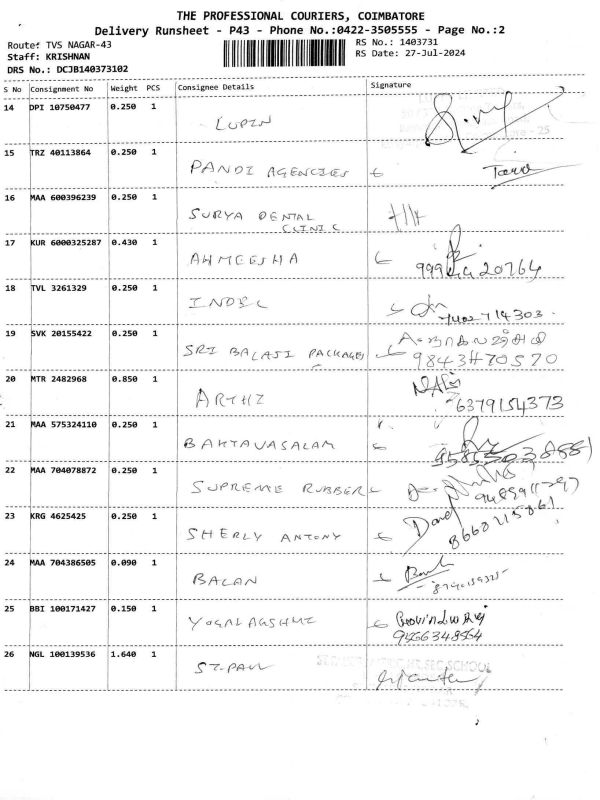 THE PROFESSIONAL COURIERS, COIMBATORE
Delivery Runsheet - P43 - Phone No.:0422-3505555 - Page No.:2
Route: TVS NAGAR-43
RS No.: 1403731
Staff: KRISHNAN
RS Date: 27-Jul-2024
DRS No.: DCJB140373102
S No Consignment No Weight PCS Consignee Details Signature
14 DPI 10750477 0.250 1
LUPIN
15 TRZ 40113864 0.250 1
PANDI AGENCIES
16 MAA 600396239 0.250 1
SURYA DENTAL
CLINIC
17 KUR 6000325287 0.430 1
AHMEESHA
18 TVL 3261329 0.250 1
INDEL
7402714303
19 SVK 20155422 0.250 1
SRI BALAJI PACKAGES
9843470570
20 MTR 2482968 0.850 1
ARTHI
6379154373
21 MAA 575324110 0.250 1
BAKTAVASALAM
22 MAA 704078872 0.250 1
SUPREME RUBBER
23 KRG 4625425 0.250 1
SHERLY ANTONY
8660215061
24 MAA 704386505 0.090 1
BALAN
25 BBI 100171427 0.150 1
YOGALAGSHMI
Govindaraj
9466348564
26 NGL 100139536 1.640 1
ST. PAUL